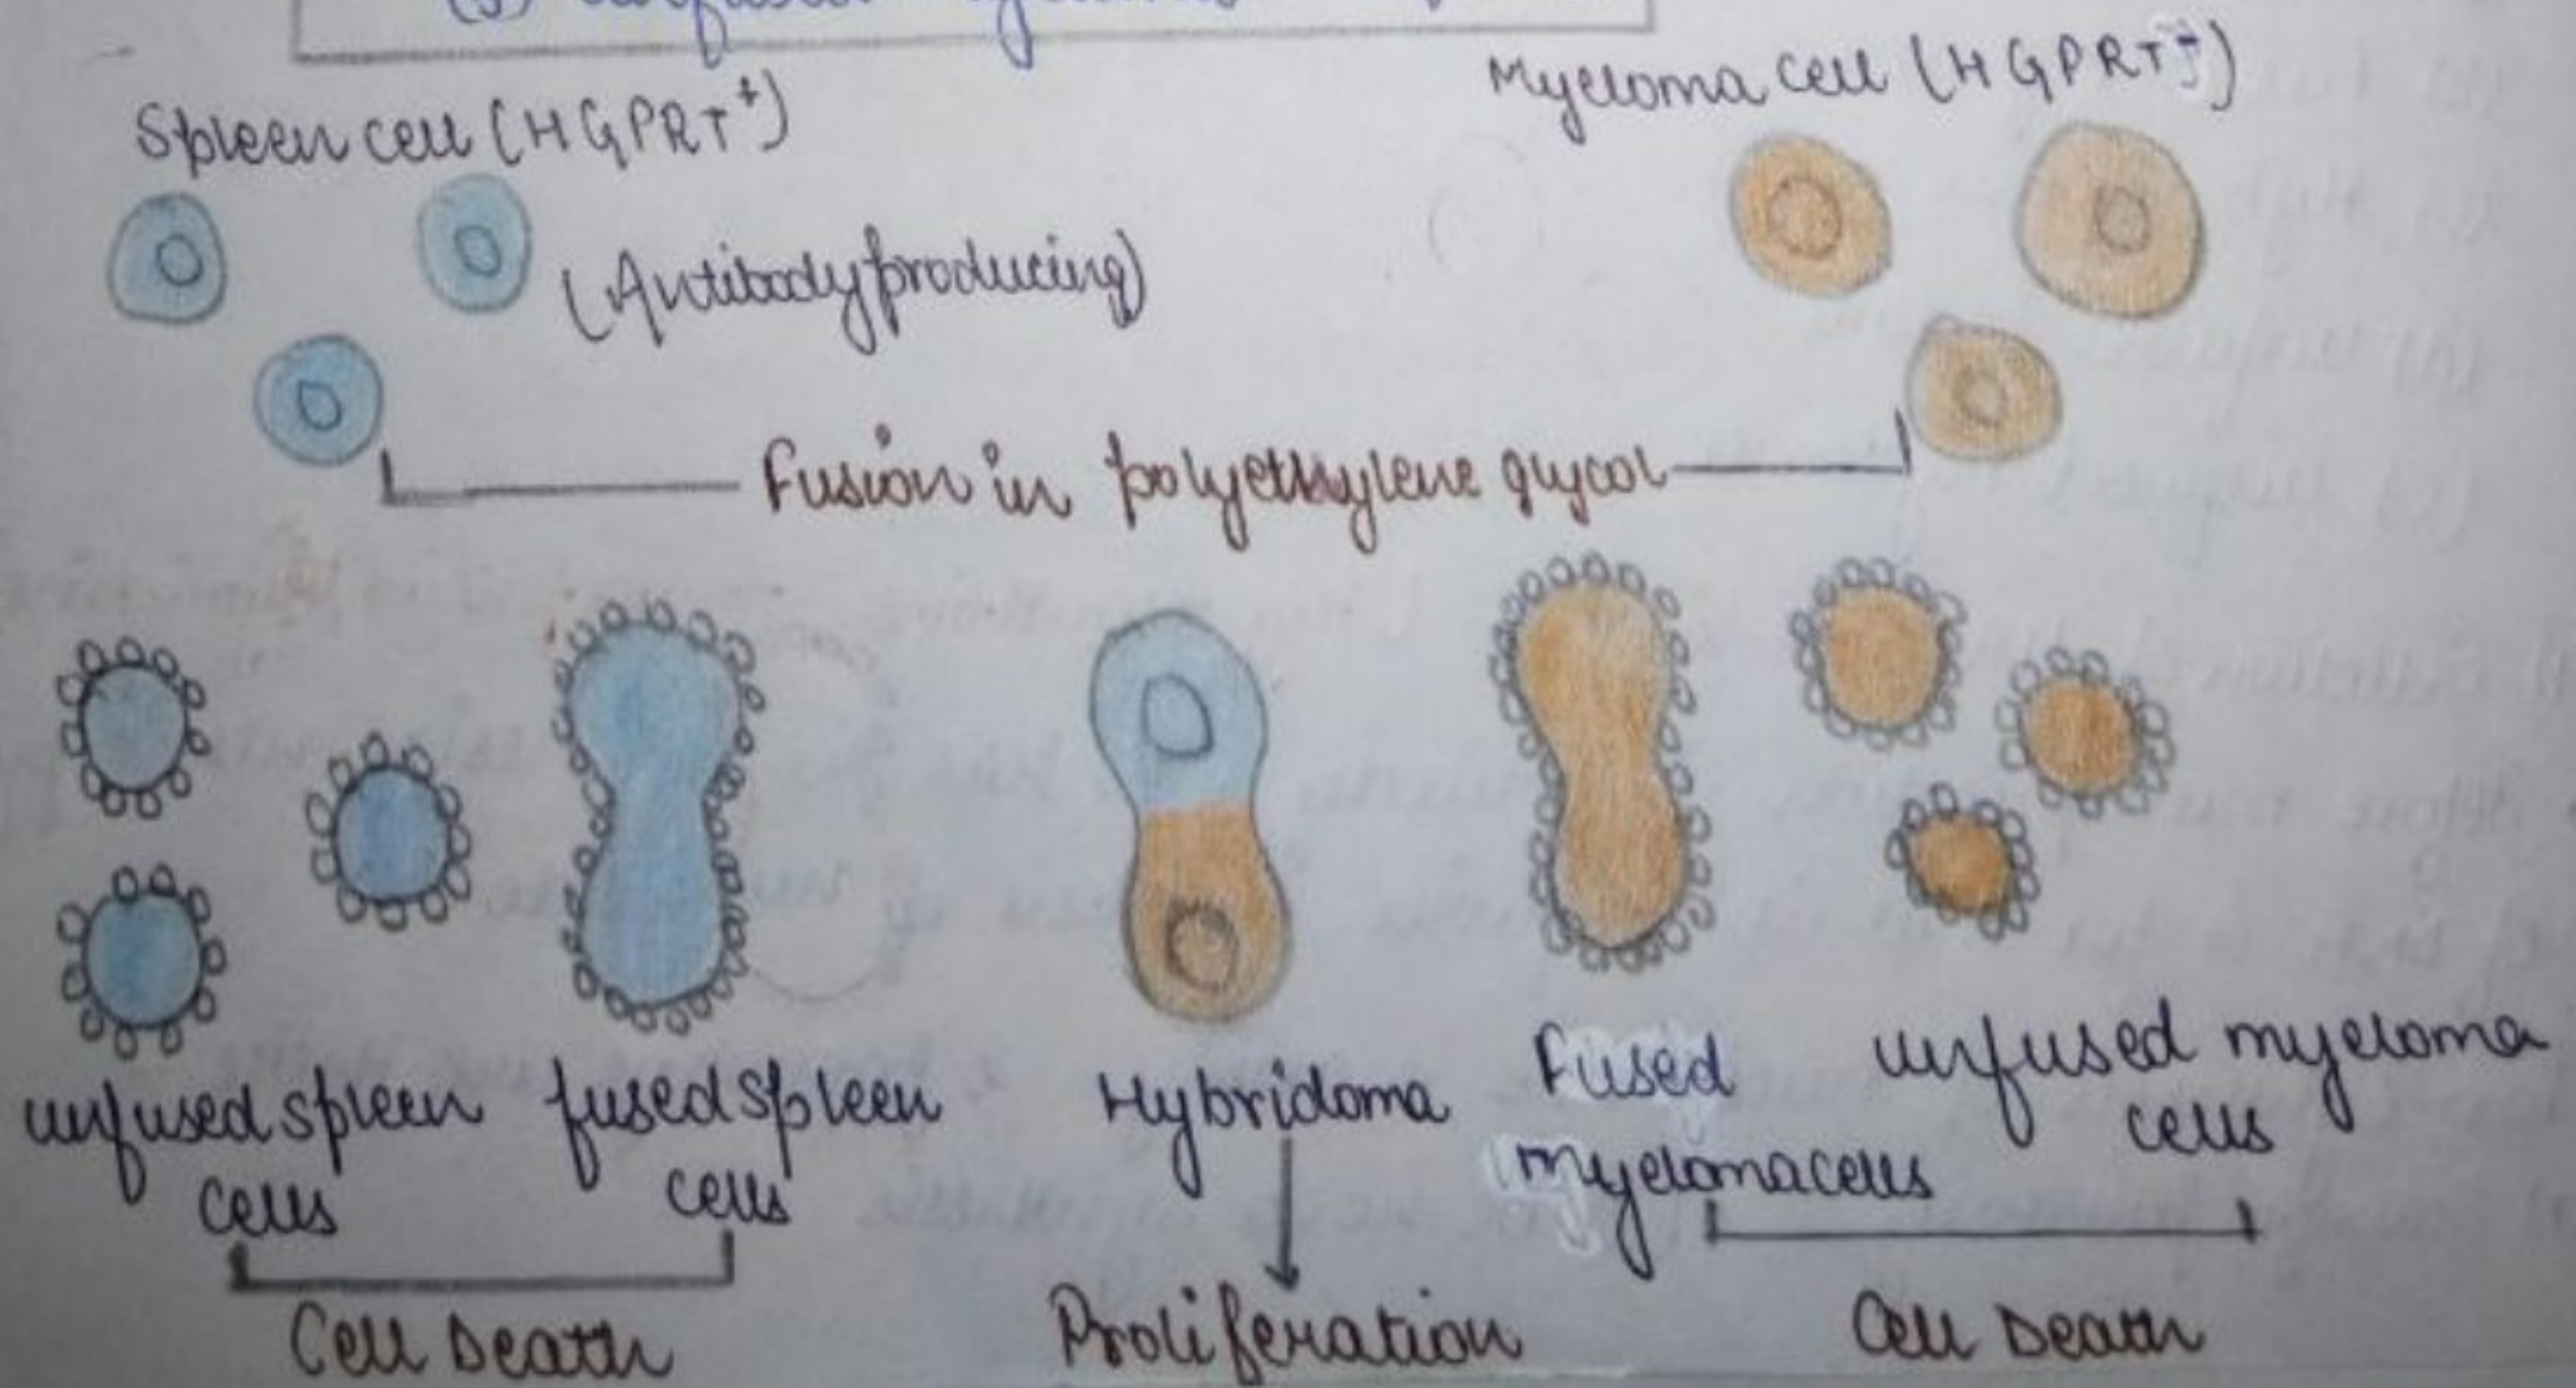 Spleen cell (HGPRT⁺)
Myeloma cell (HGPRT
(Antibody producing)
Fusion in polyethylene glycol
unfused spleen
cells
fused spleen
cells
Hybridoma
Fused
myeloma cells
unfused myeloma
cells
Cell Death
Proliferation
Cell Death